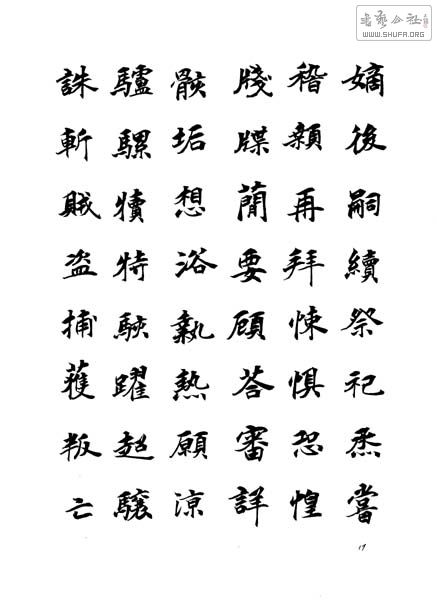 嫡後嗣續祭祀烝當
稽顙再拜悚懼恐惶
牋牒簡要顧荅審詳
骸垢想浴執熱願涼
驢騾犢特駭躍超驤
誅斬賊盗捕獲叛亡
17
書藝公社
WWW.SHUFA.ORG